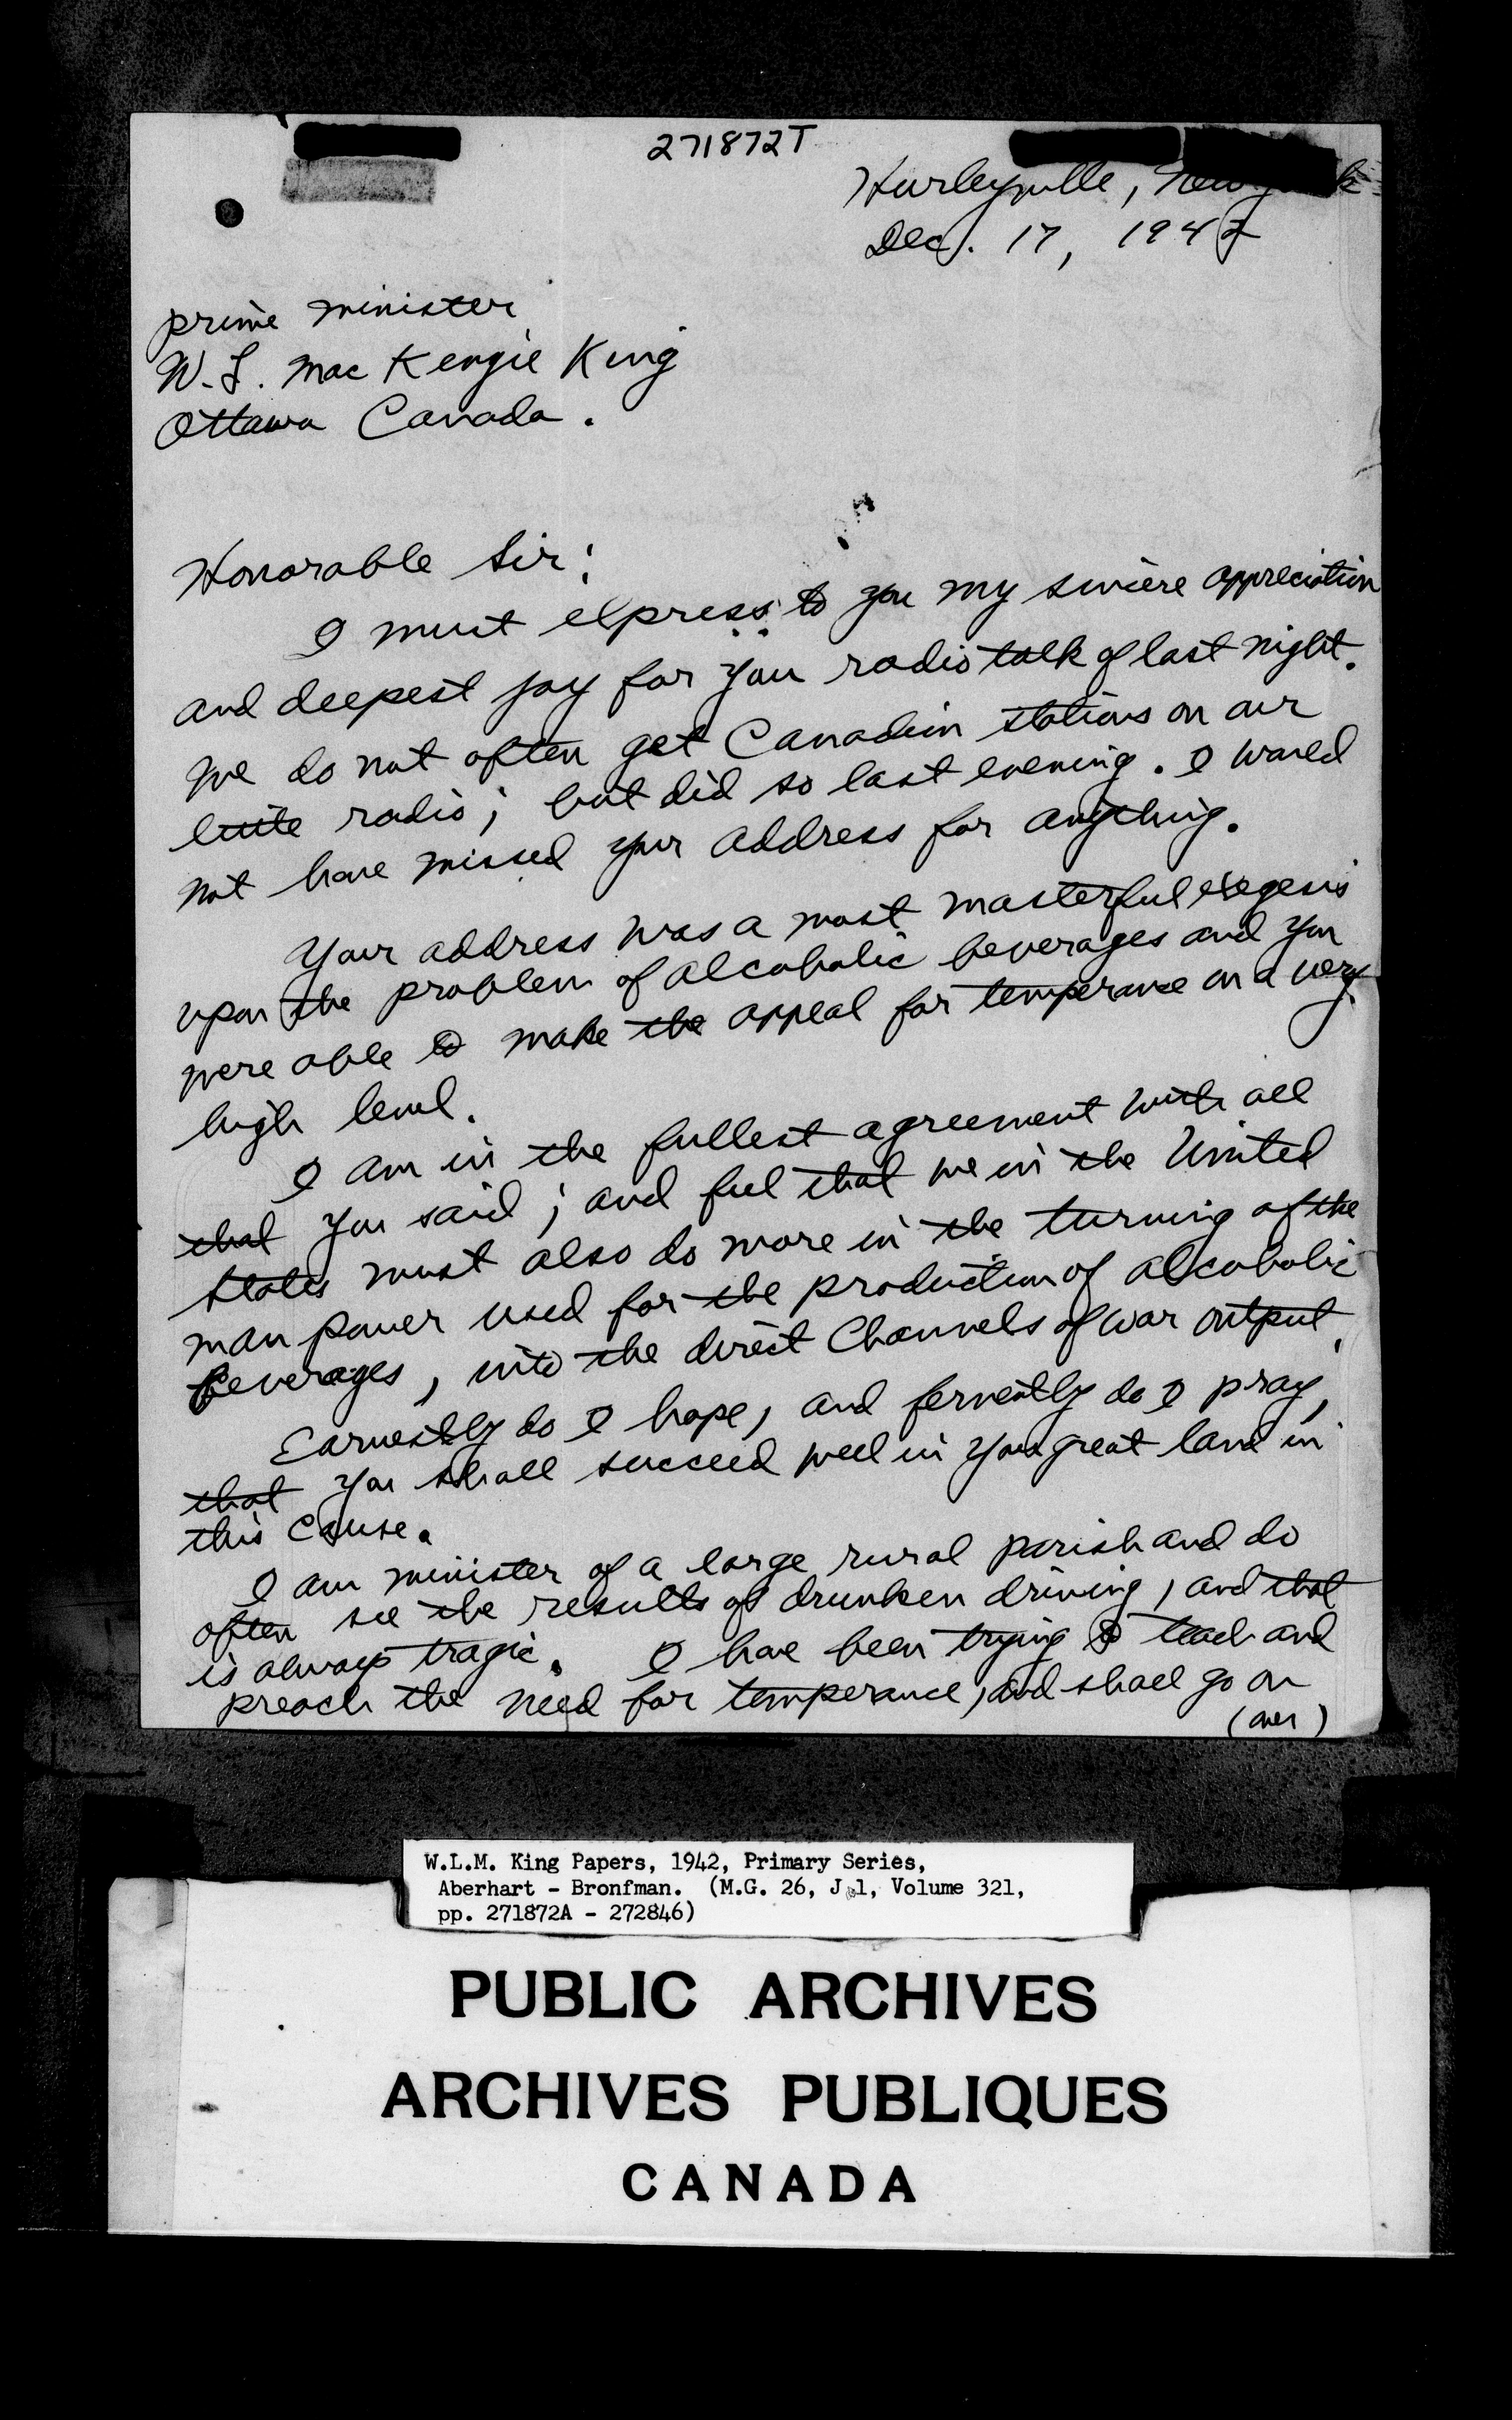 271872T
Hurleyville, New York
Dec. 17, 1942
Prime Minister
W. L. MacKenzie King
Ottawa Canada.
Honorable Sir:
I must express to you my sincere appreciation
and deepest joy for your radio talk of last night.
We do not often get Canadian stations on our
little radio; but did so last evening. I would
not have missed your address for anything.
Your address was a most masterful exegesis
upon the problem of alcoholic beverages and you
were able to make the appeal for temperance on a very
high level.
I am in the fullest agreement with all
that you said; and feel that we in the United
States must also do more in the turning of the
man power used for the production of alcoholic
beverages, into the direct channels of war output.
Earnestly do I hope, and fervently do I pray,
that you shall succeed well in your great land in
this cause.
I am minister of a large rural parish and do
often see the results of drunken driving, and that
is always tragic. I have been trying to teach and
preach the need for temperance, and shall go on
(over)
W.L.M. King Papers, 1942, Primary Series,
Aberhart - Bronfman. (M.G. 26, J 1, Volume 321,
pp. 271872A - 272846)
PUBLIC ARCHIVES
ARCHIVES PUBLIQUES
CANADA